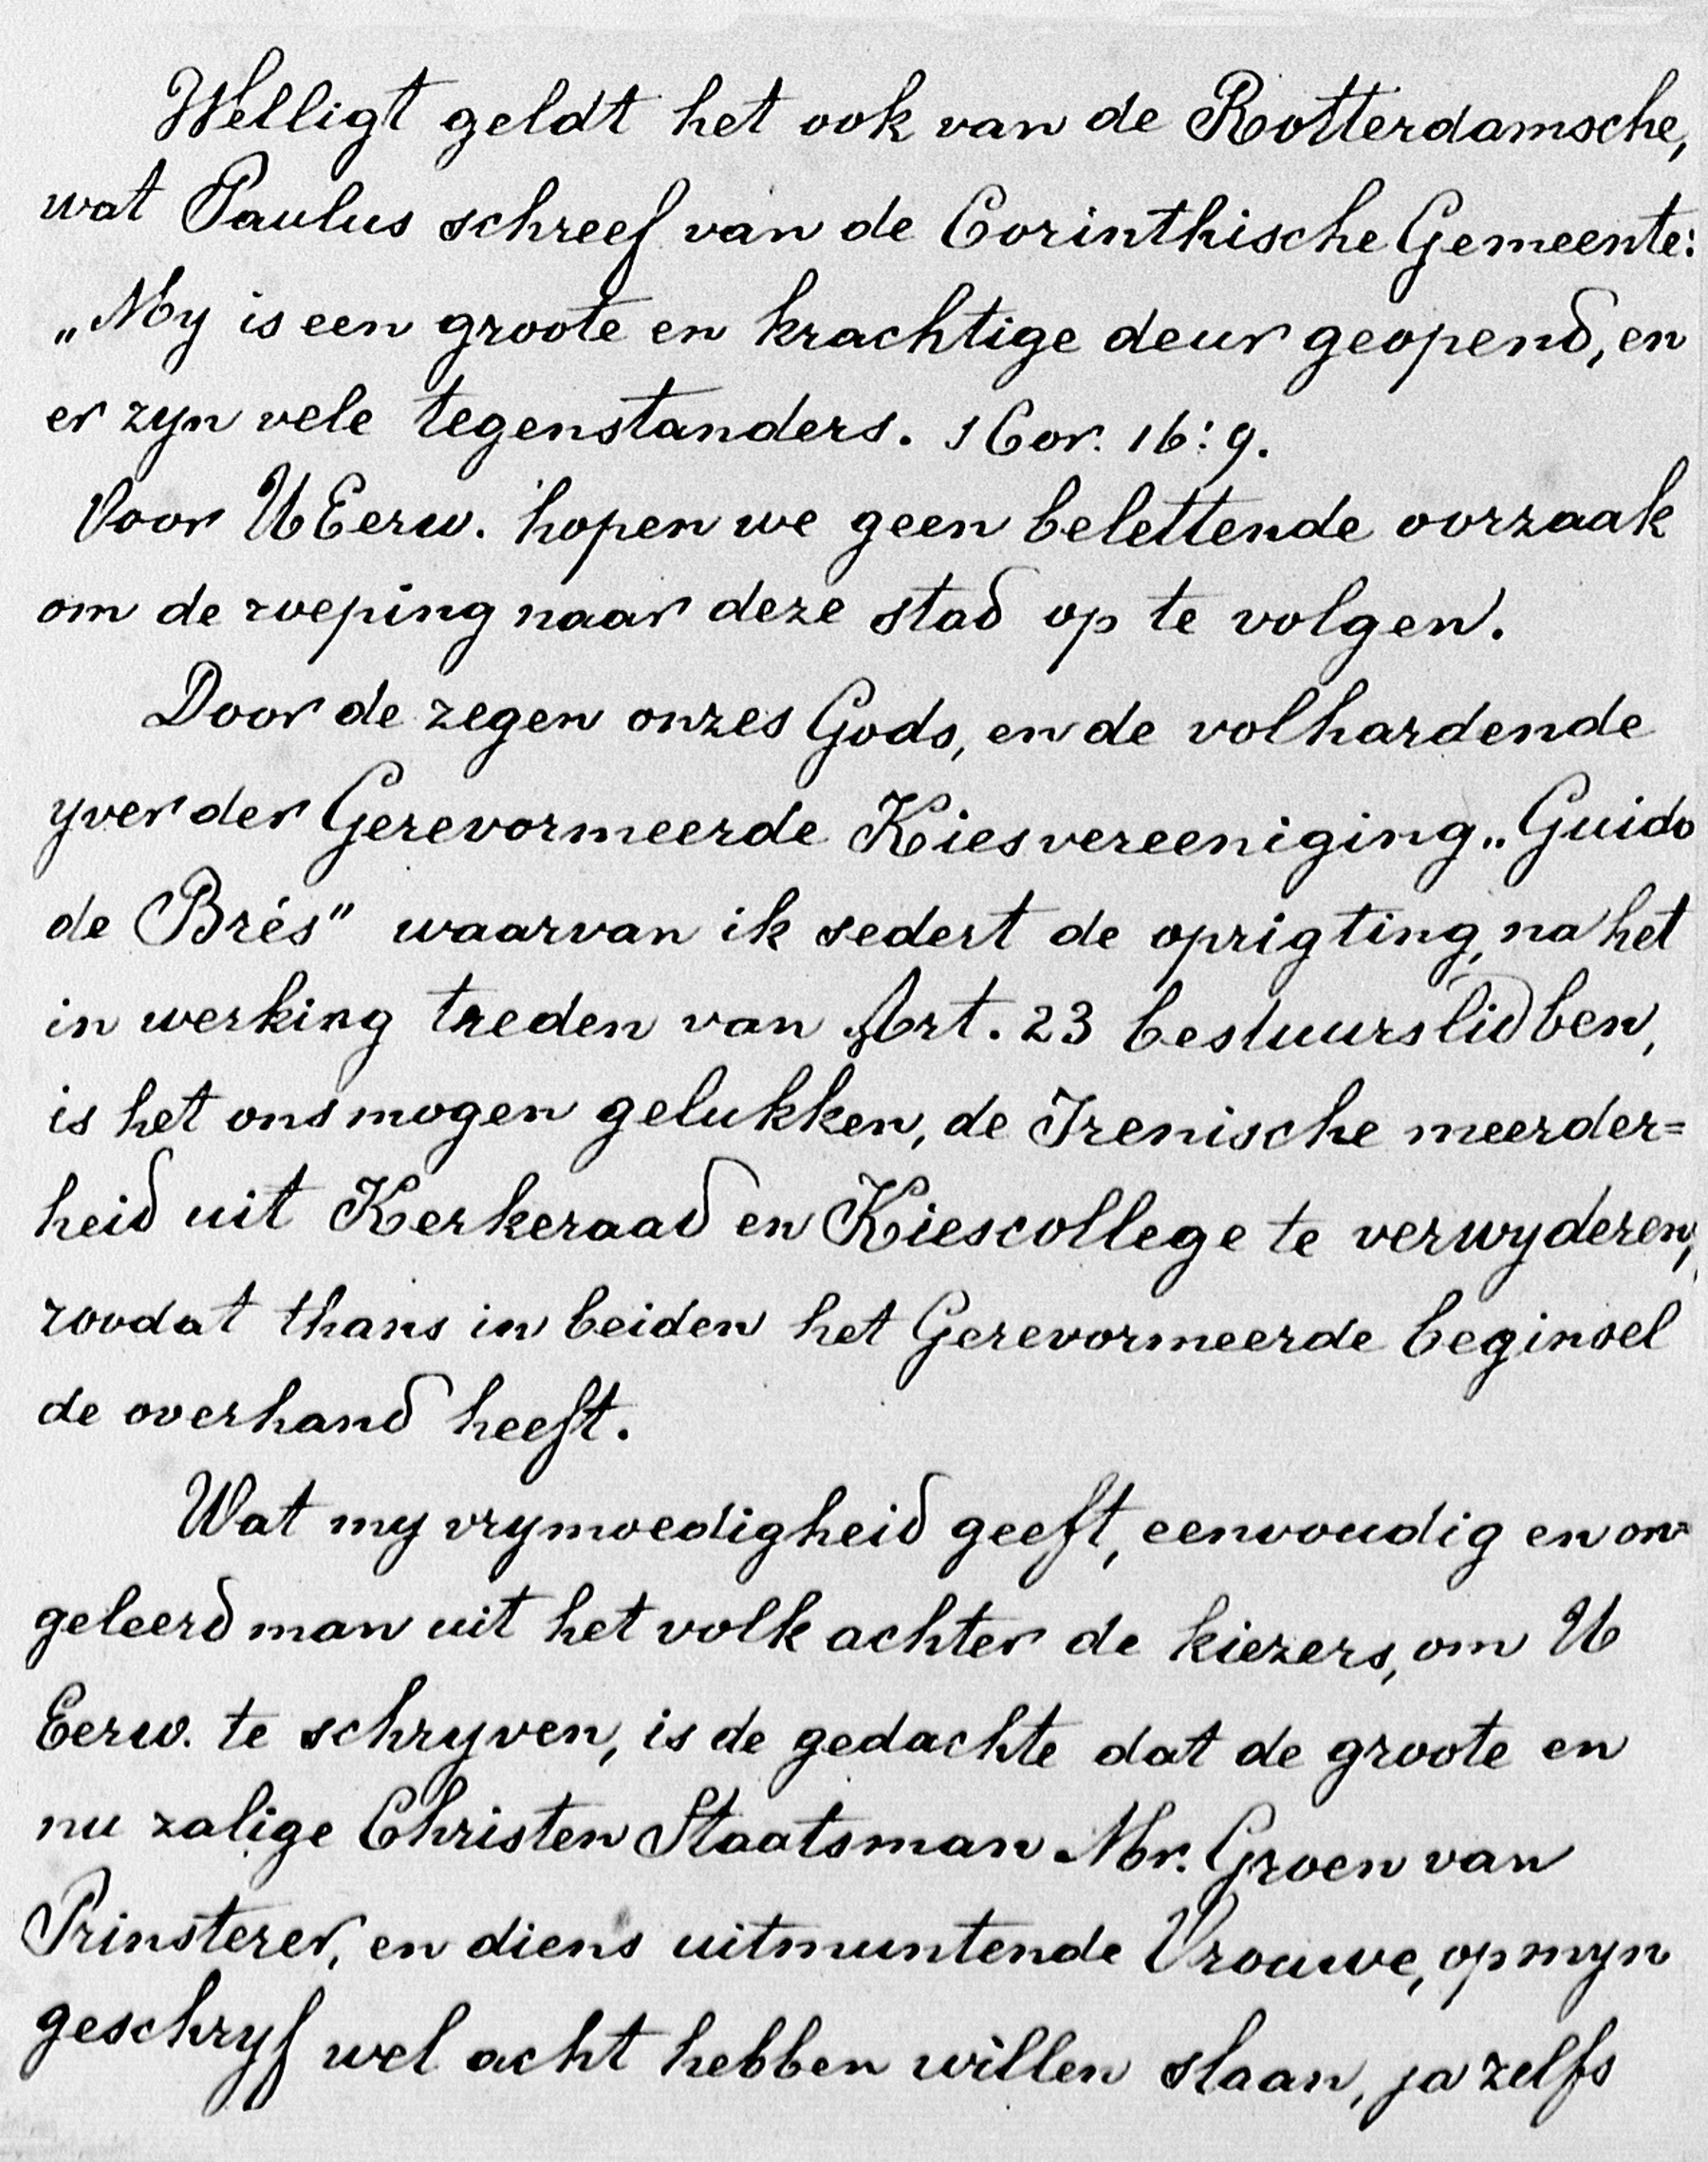 Welligt geldt het ook van de Rotterdamsche,
wat Paulus schreef van de Corinthische Gemeente:
„My is een groote en krachtige deur geopend, en
er zyn vele tegenstanders. 1 Cor. 16:9.
Voor UEerw. hopen we geen belettende oorzaak
om de roeping naar deze stad op te volgen.
Door de zegen onzes Gods, en de volhardende
yver der Gerevormeerde Kiesvereeniging „Guido
de Brés" waarvan ik sedert de oprigting, na het
in werking treden van Art. 23 bestuurslid ben,
is het ons mogen gelukken, de Irenische meerder=
heid uit Kerkeraad en Kiescollege te verwyderen,
zoodat thans in beiden het Gerevormeerde beginsel
de overhand heeft.
Wat my vrymoedigheid geeft, eenvoudig en on=
geleerd man uit het volk achter de kiezers, om U
Eerw. te schryven, is de gedachte dat de groote en
nu zalige Christen Staatsman Mr. Groen van
Prinsterer, en diens uitmuntende Vrouwe, op myn
geschryf wel acht hebben willen slaan, ja zelfs